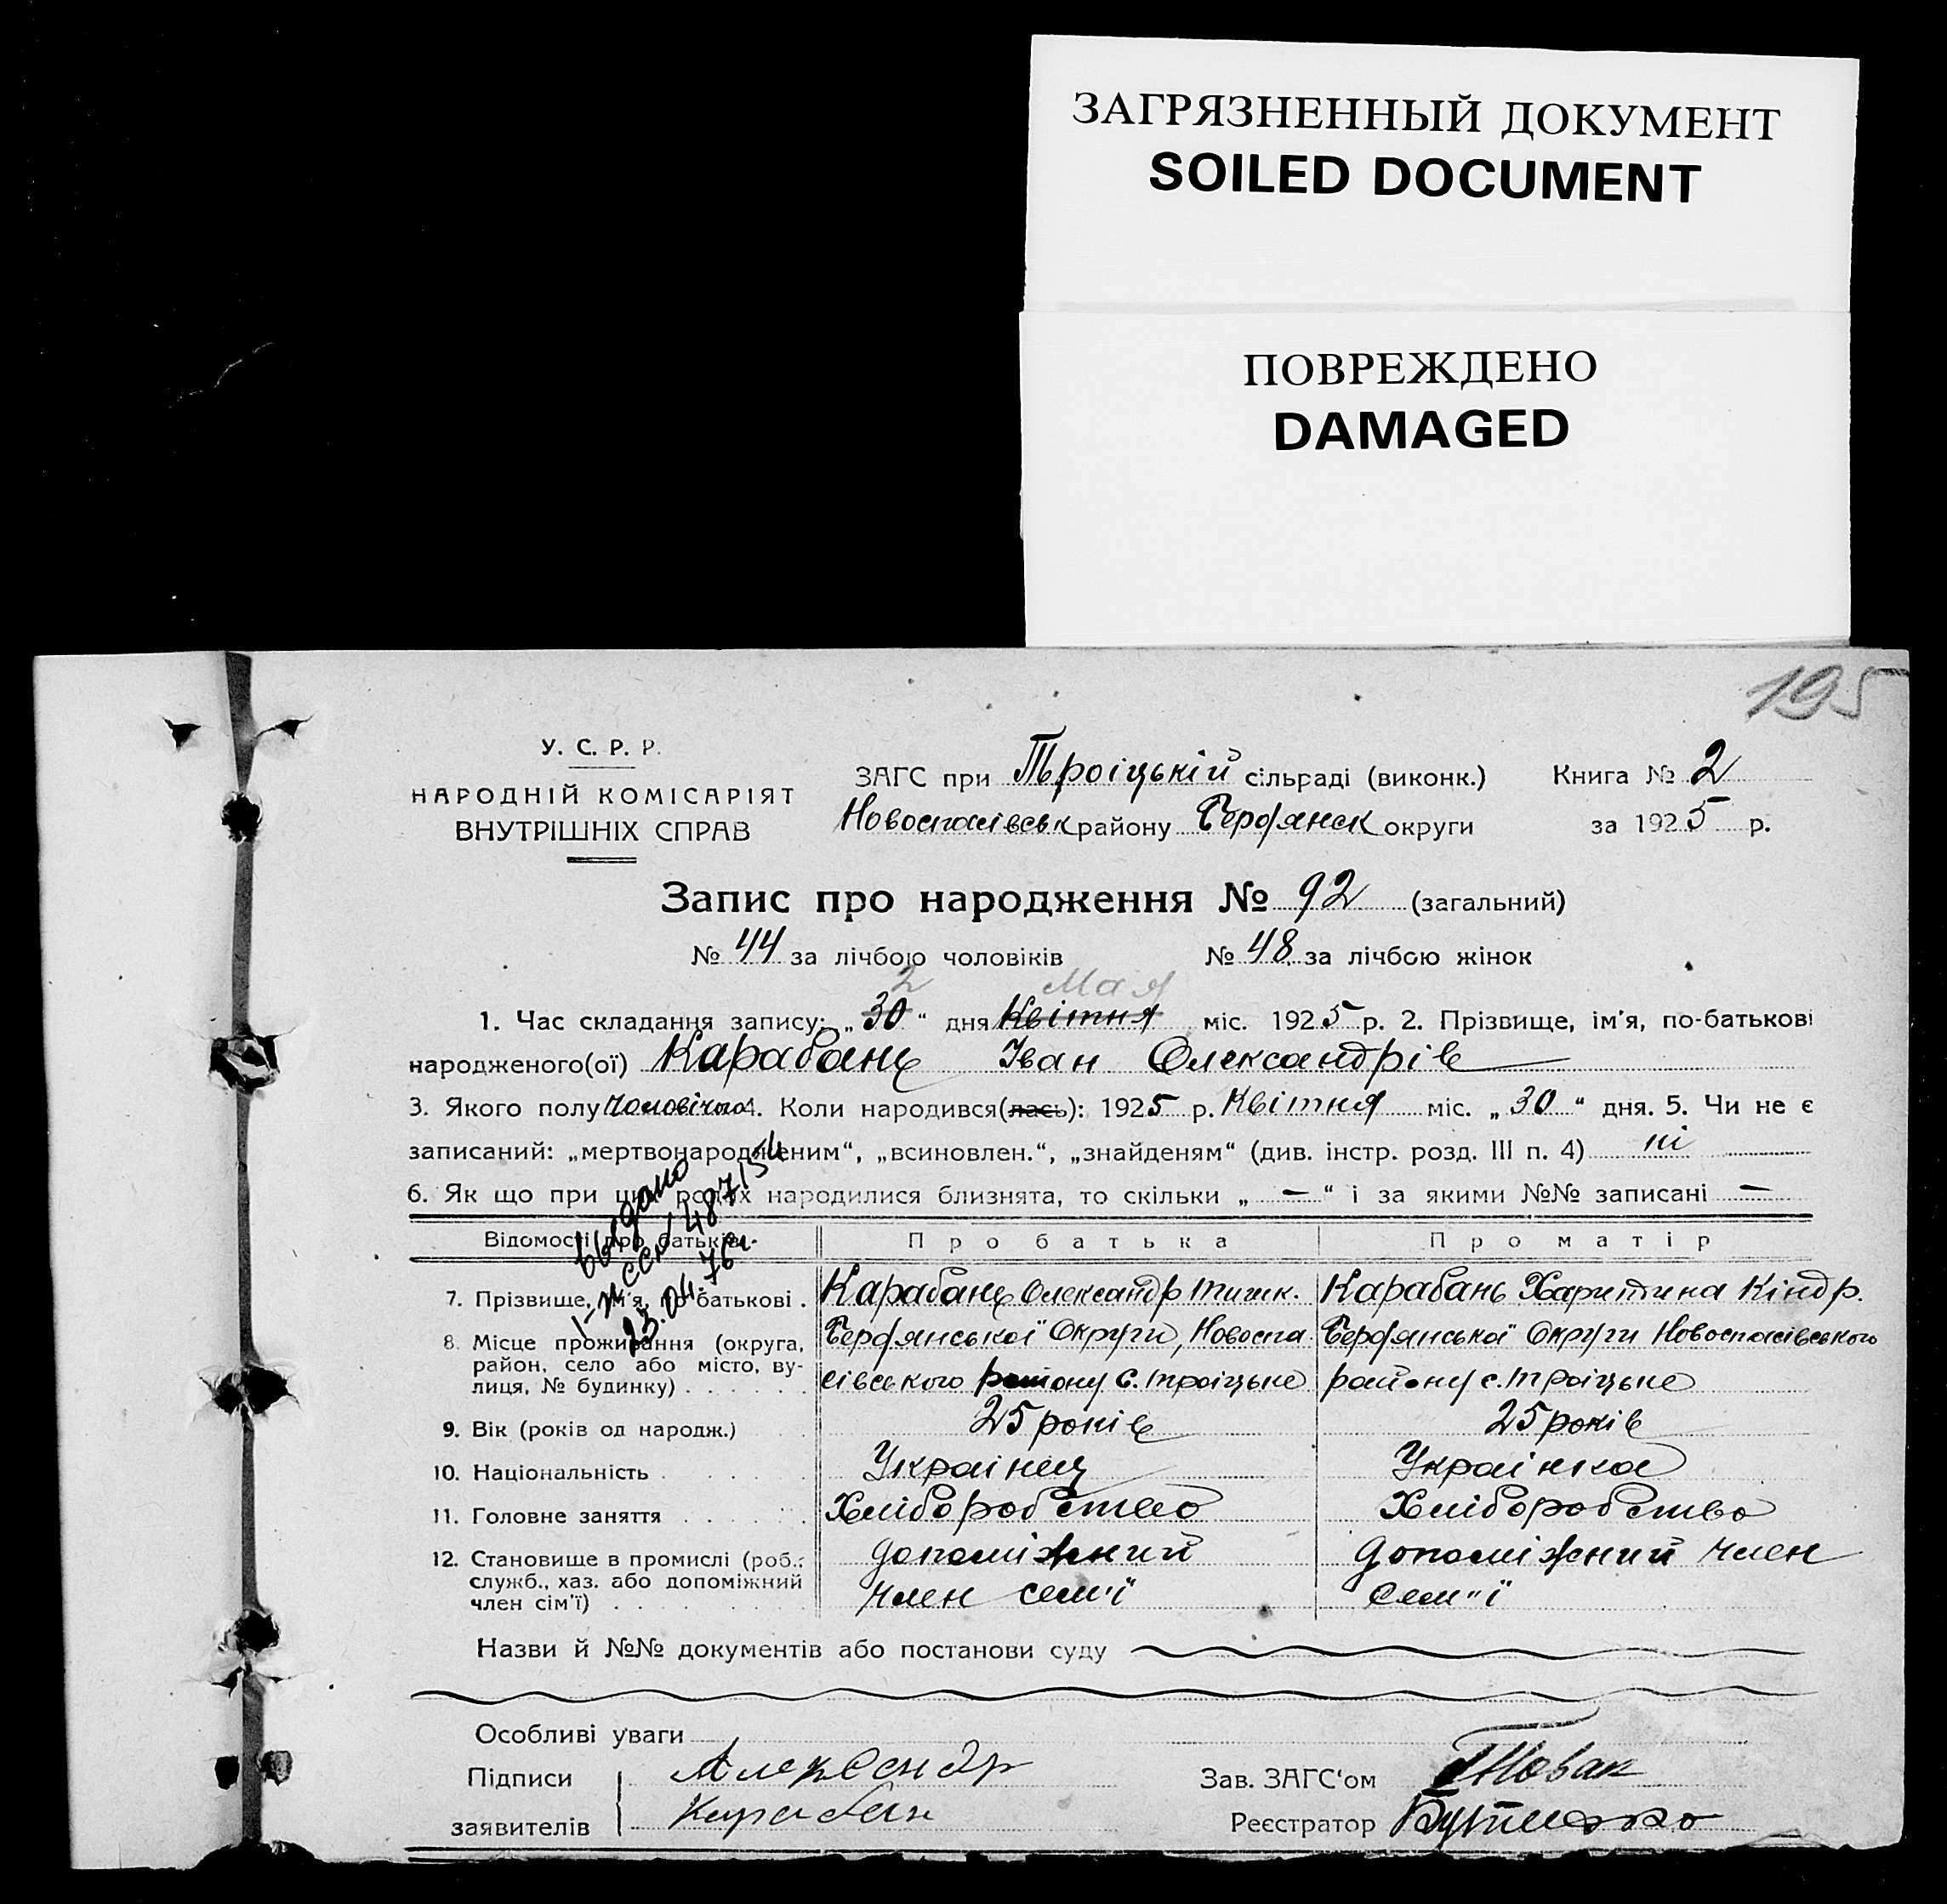 ЗАГРЯЗНЕННЫЙ ДОКУМЕНТ
SOILED DOCUMENT
ПОВРЕЖДЕНО
DAMAGED
195
У. С. Р. Р.
НАРОДНІЙ КОМІСАРІЯТ
ВНУТРІШНІХ СПРАВ
ЗАГС при Троіцькій сільраді (виконк.) Книга № 2
Новоспасівськ району Бердянск округи за 1925 р.
Запис про народження № 92 (загальний)
№ 44 за лічбою чоловіків № 48 за лічбою жінок
2 Мая
1. Час складання запису: „30“ дня Квітня міс. 1925 р. 2. Прізвище, ім'я, по-батькові
народженого(ої) Карабань Іван Олександрів
3. Якого полу чоловічого 4. Коли народився(лась): 1925 р. Квітня міс. „30“ дня. 5. Чи не є
записаний: „мертвонародженим“, „всиновлен.“, „знайденям“ (див. інстр. розд. III п. 4) ні
6. Як що при цих родах народилися близнята, то скільки „ — “ і за якими №№ записані —
Выдано
23.04.76г.
Відомості про батьків Про батька Про матір
7. Прізвище, ім'я, по-батькові . Карабань Олександр Тимк. Карабань Харитина Кіндр.
8. Місце проживання (округа, Бердянської Округи, Новоспа Бердянської Округи Новоспасівського
район, село або місто, ву-
лиця, № будинку) . . . . . . сівського району с. Троіцьке району с. Троіцьке
9. Вік (років од народж.) 25 років 25 років
10. Національність . . . . Українец Українка
11. Головне заняття . . . . . . Хліборобство Хліборобство
12. Становище в промислі (роб., допоміжний допоміжний член
служб., хаз. або допоміжний
член сім'ї) . . . . . . член сем'ї сем"ї
Назви й №№ документів або постанови суду
Особливі уваги
Підписи Александр Зав. ЗАГС'ом Новак
заявителів Карабан Реєстратор